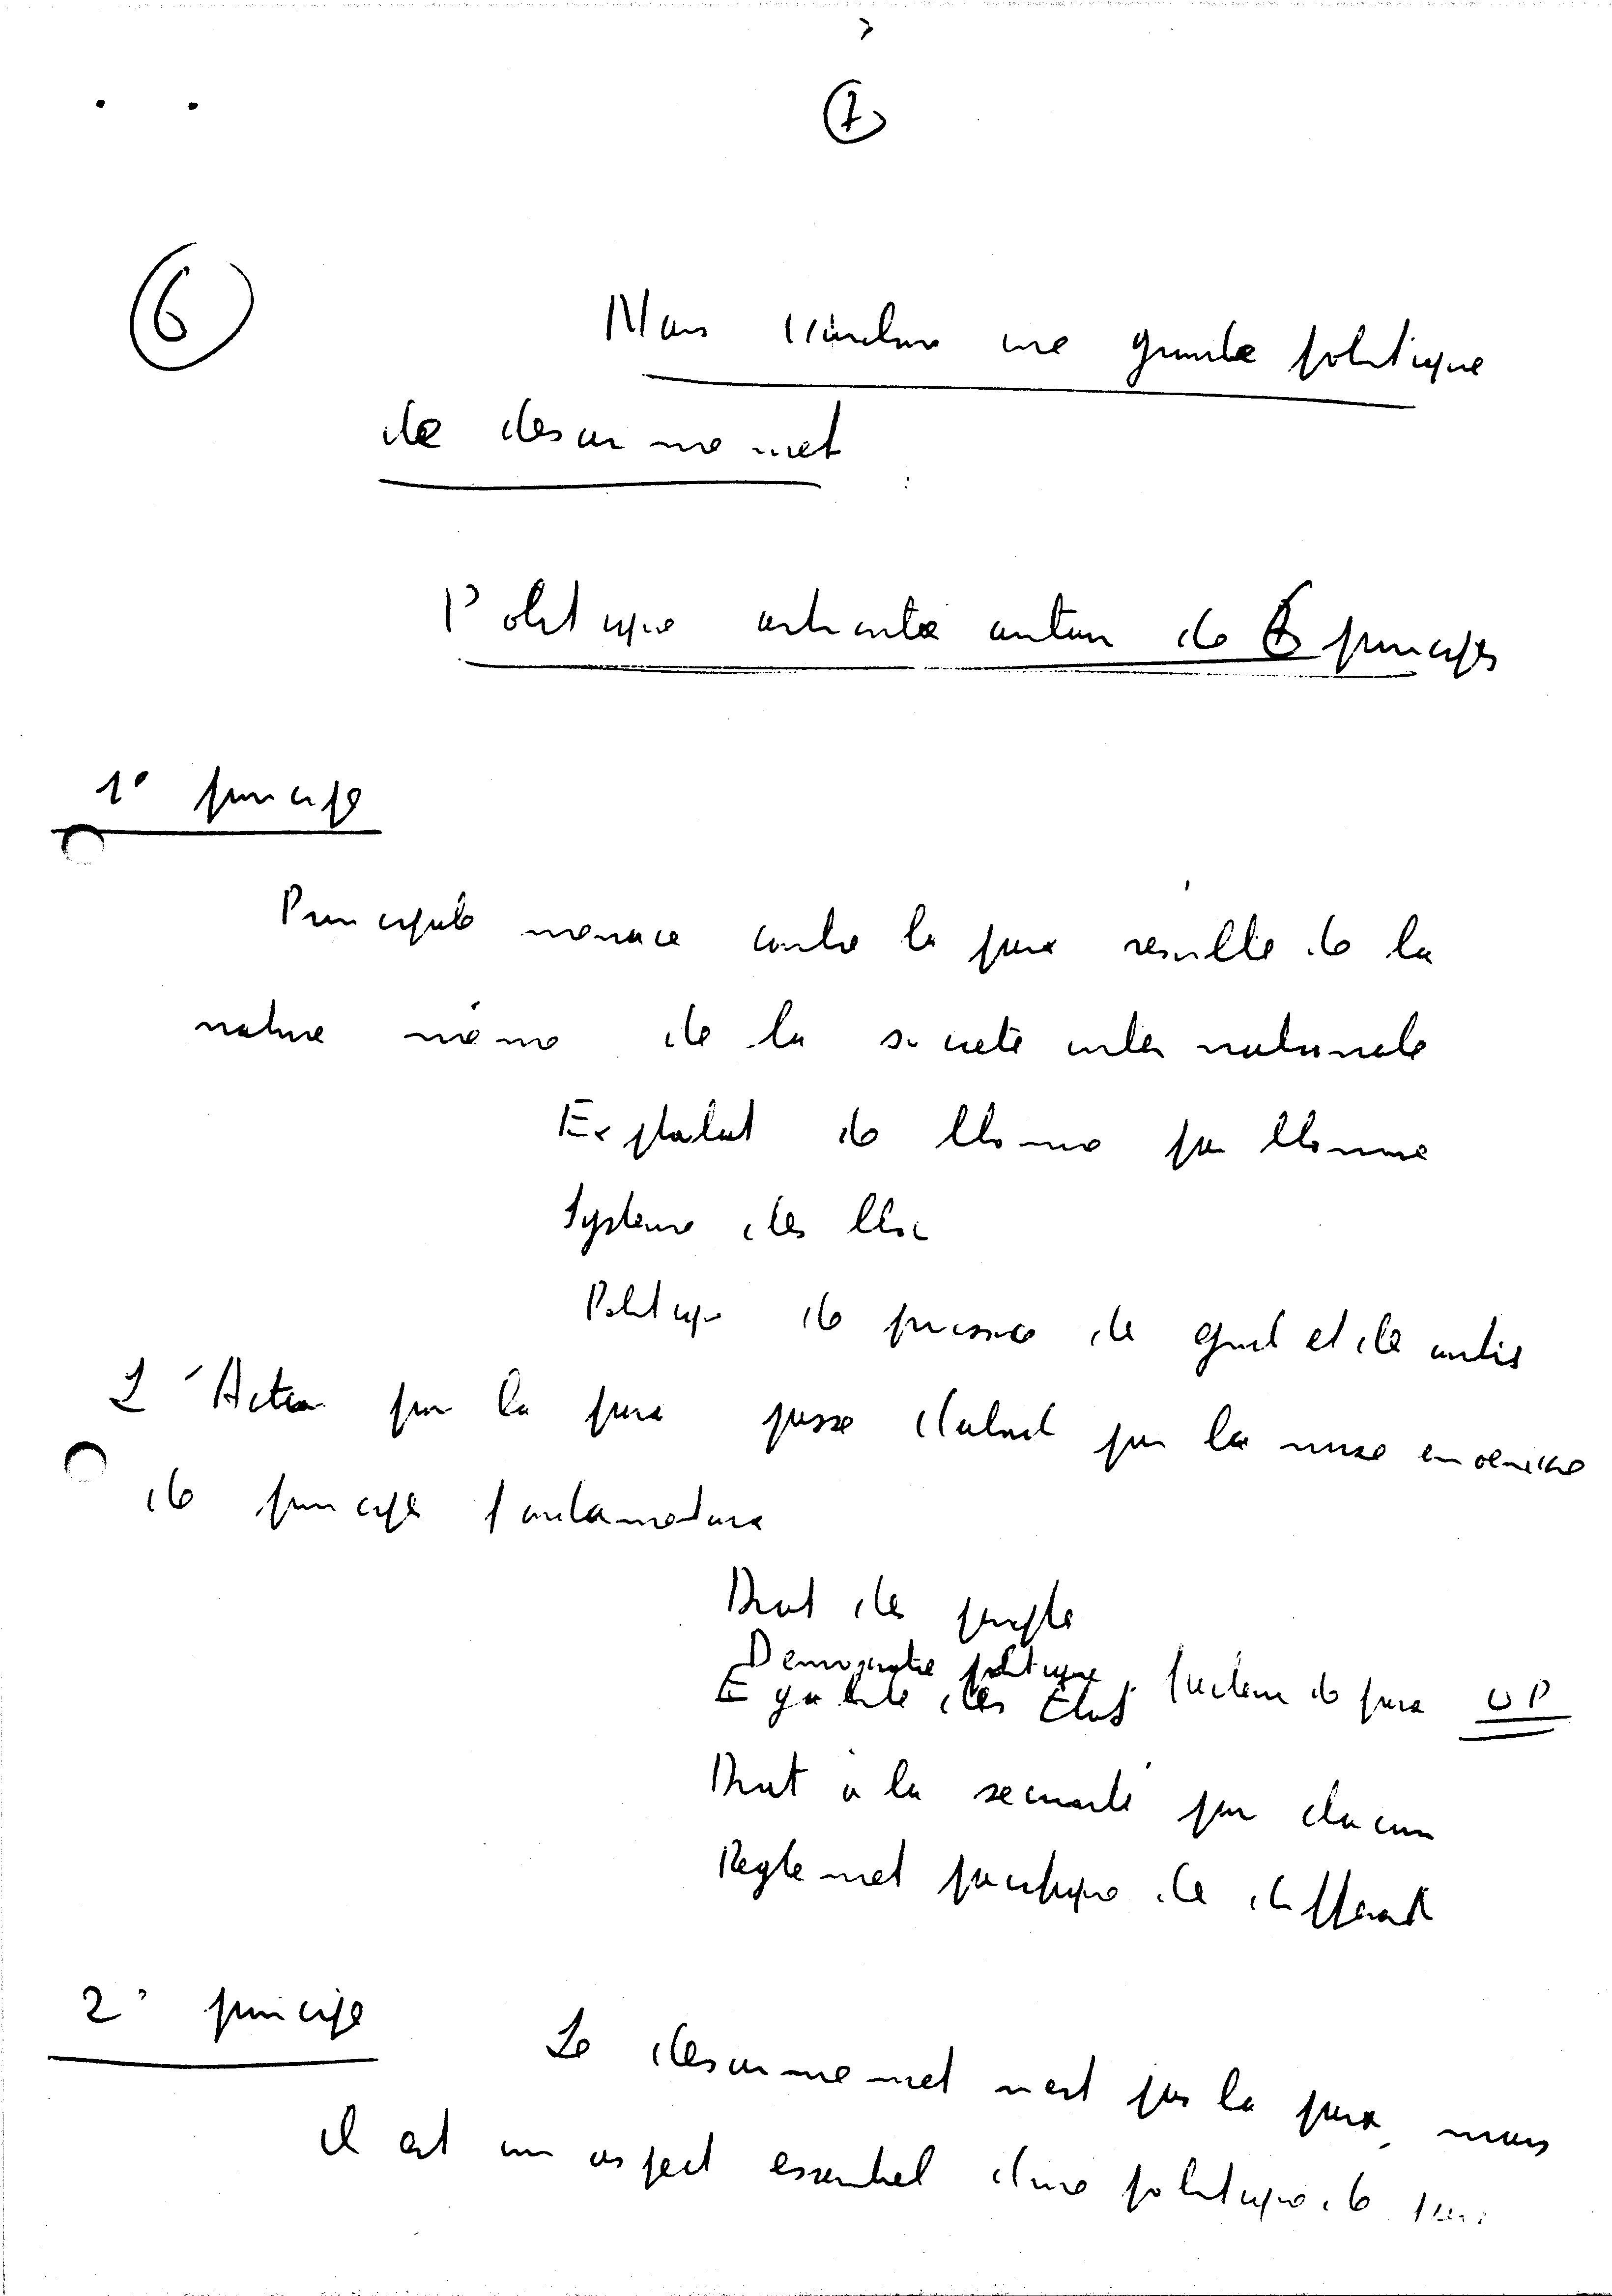 7
6
Nous voulons une grande politique
de desarmement
Politique orientée autour de 6 principes
1° principe
Principale menace contre la paix resulte de la
nature même de la societé internationale
Exploitat de l'homme par l'homme
Systeme des bloc
Politique de puissance de
L'Action pour la paix passe d'abord par la mise en oeuvre
de principe fondamentaux
Droit des peuple
Democratie politique
Egalite des Etats facteur de paix UP
Droit à la securité pour chacun
Reglement pacifique de differents
2° principe
Le desarmement n'est pas la paix, mais
il est un aspect essentiel d'une politique de paix